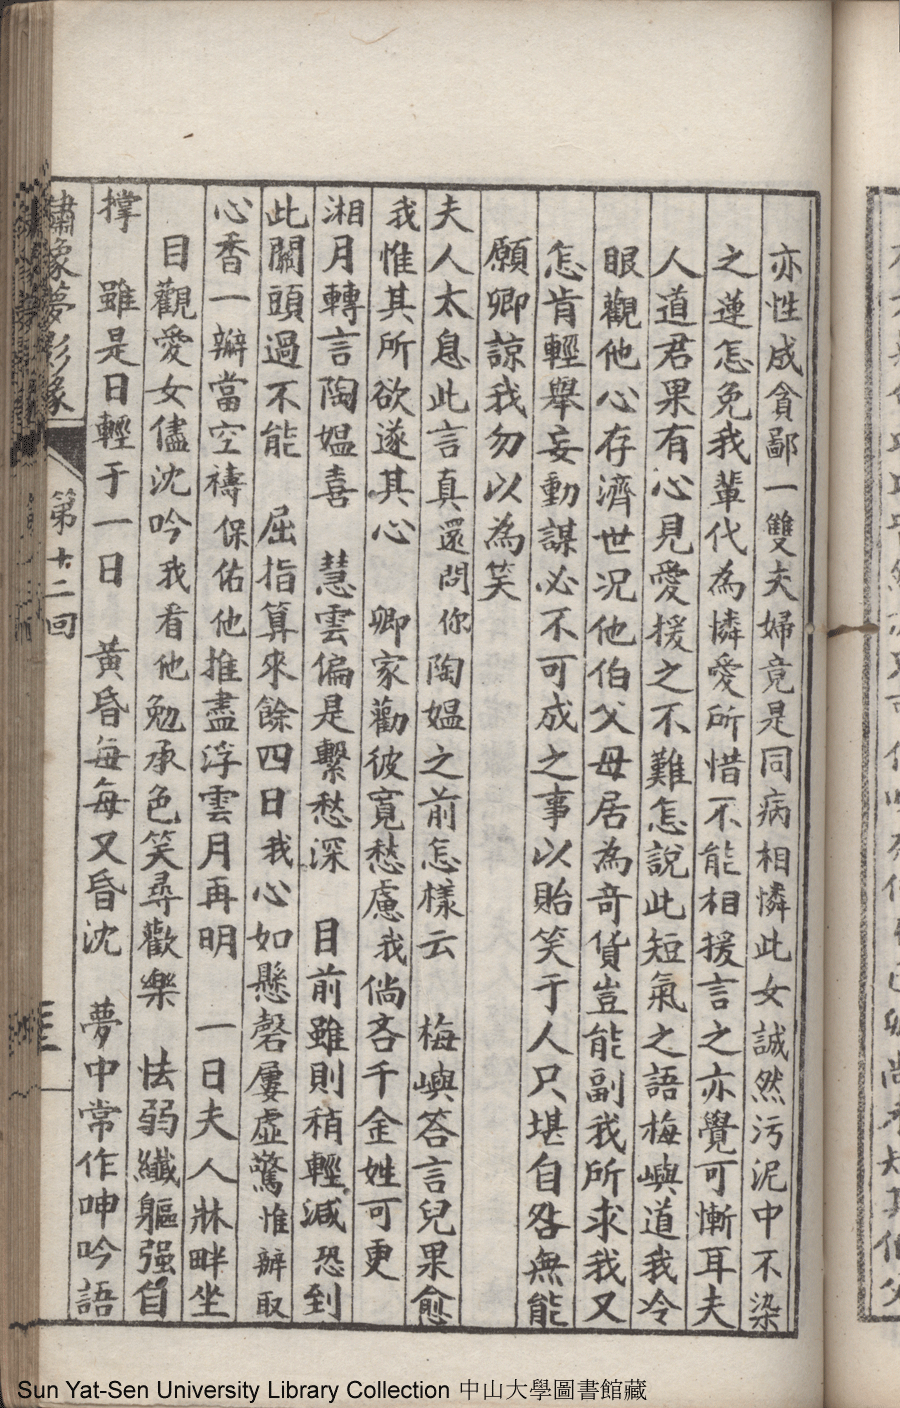 亦性成貪鄙一雙夫婦竟是同病相憐此女誠然污泥中不染
之蓮怎免我輩代為憐愛所惜不能相援言之亦覺可慚耳夫
人道君果有心見愛援之不難怎說此短氣之語梅嶼道我冷
眼觀他心存濟世况他伯父母居為奇貨豈能副我所求我又
怎肯輕舉妄動謀必不可成之事以貽笑于人只堪自咎無能
願卿諒我勿以為笑
夫人太息此言真還問你陶媼之前怎樣云 梅嶼答言兒果愈
我惟其所欲遂其心 卿家勸彼寬愁慮我倘吝千金姓可更
湘月轉言陶媼喜 慧雲偏是繫愁深 目前雖則稍輕減恐到
此關頭過不能 屈指算來餘四日我心如懸磬屢虛驚惟辦取
心香一瓣當空禱保佑他推盡浮雲月再明 一日夫人牀畔坐
目觀愛女儘沈吟我看他勉承色笑尋歡樂 怯弱纖軀强自
撑 雖是日輕于一日 黃昏每每又昏沈 夢中常作呻吟語
繡像夢影緣 第十二回
Sun Yat-Sen University Library Collection 中山大學圖書館藏